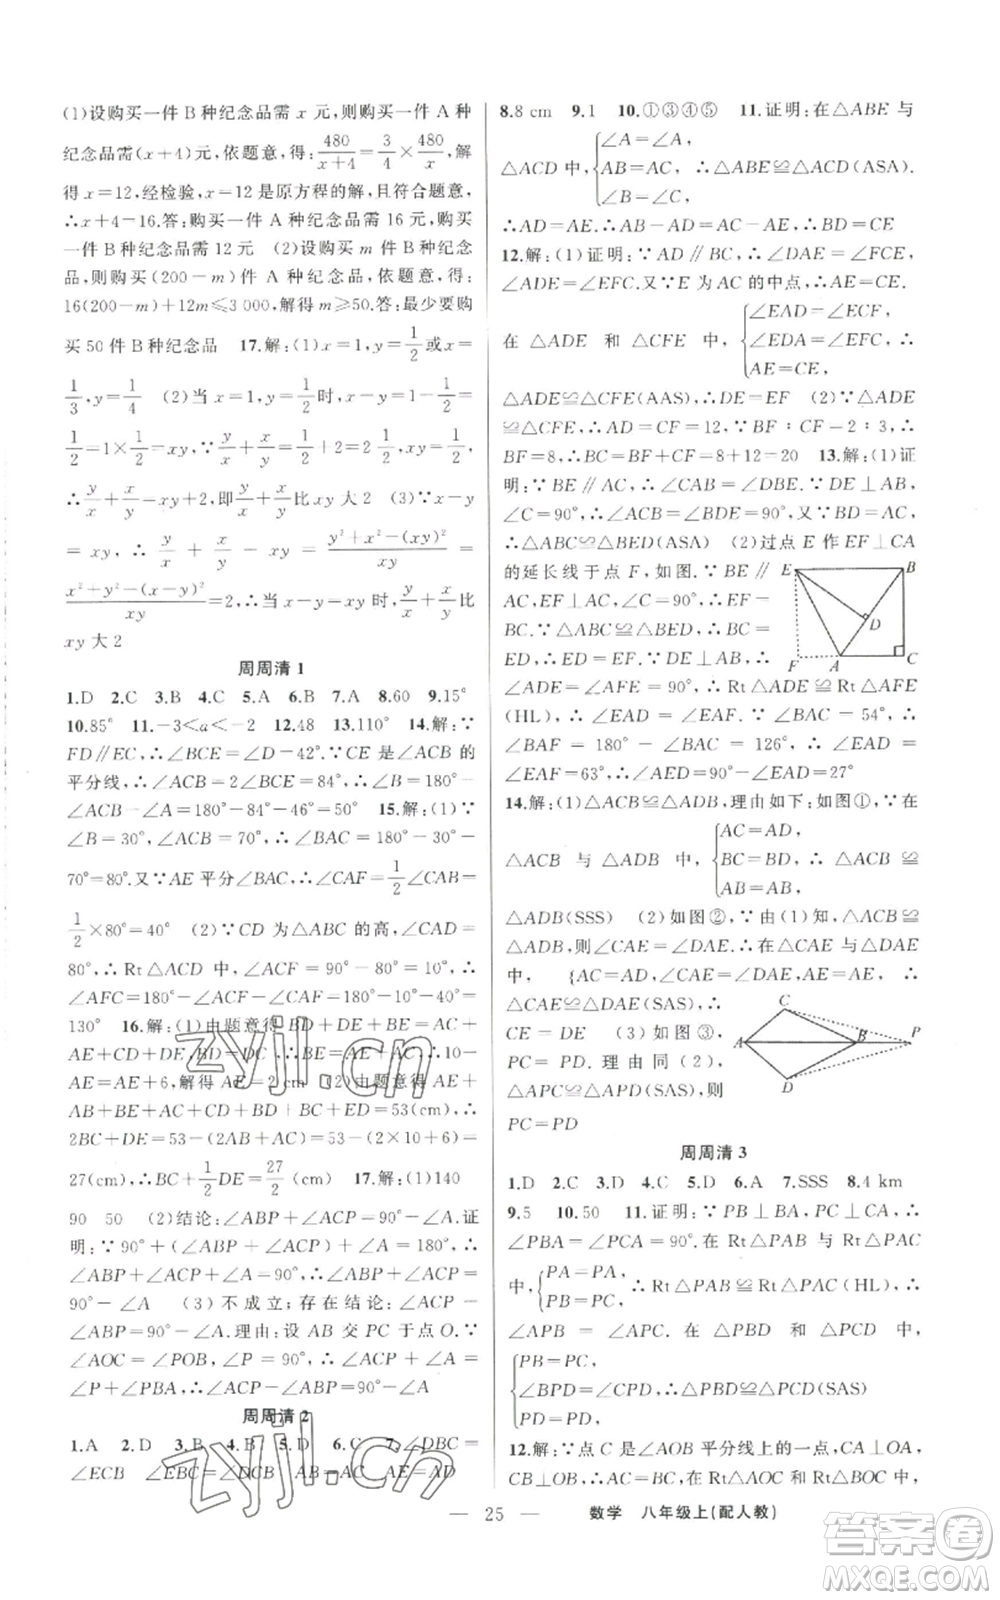 (1)设购买一件 B 种纪念品需 x 元,则购买一件 A 种
纪念品需(x+4)元,依题意,得:480/(x+4)=3/4×480/x,解
得 x=12,经检验,x=12 是原方程的解,且符合题意,
∴x+4=16.答:购买一件 A 种纪念品需 16 元,购买
一件 B 种纪念品需 12 元 (2)设购买 m 件 B 种纪念
品,则购买(200-m)件 A 种纪念品,依题意,得:
16(200-m)+12m≤3 000,解得 m≥50.答:最少要购
买 50 件 B 种纪念品 17.解:(1)x=1,y=1/2或 x=
1/3,y=1/4 (2)当 x=1,y=1/2时,x-y=1-1/2=
1/2=1×1/2=xy,∵y/x+x/y=1/2+2=xy+2,
∴y/x+x/y=xy+2,即y/x+x/y比 xy 大 2 (3)∵x-y
=xy,∴y/x+x/y-xy=(y²+x²-(xy)²)/xy=
(x²+y²-(x-y)²)/xy=2,∴当 x-y=xy 时,y/x+x/y比
xy 大 2
周周清 1
1.D 2.C 3.B 4.C 5.A 6.B 7.A 8.60 9.15°
10.85° 11.-3<a<-2 12.48 13.110° 14.解:∵
FD∥EC,∴∠BCE=∠D=42°.∵CE 是∠ACB 的
平分线,∴∠ACB=2∠BCE=84°,∴∠B=180°-
∠ACB-∠A=180°-84°-46°=50° 15.解:(1)∵
∠B=30°,∠ACB=70°,∴∠BAC=180°-30°-
70°=80°.又∵AE 平分∠BAC,∴∠CAF=1/2∠CAB=
1/2×80°=40° (2)∵CD 为△ABC 的高,∠CAD=
80°,∴Rt△ACD 中,∠ACF=90°-80°=10°,∴
∠AFC=180°-∠ACF-∠CAF=180°-10°-40°=
130° 16.解:(1)由题意得 BD+DE+BE=AC+
AE+CD+DE,∵BD=DC,∴BE=AE+AC,∴10-
AE=AE+6,解得 AE=2 cm (2)由题意得 AE+
AB+BE+AC+CD+BD+BC+ED=53(cm),∴
2BC+DE=53-(2AB+AC)=53-(2×10+6)=
27(cm),∴BC+1/2DE=27/2(cm) 17.解:(1)140
90 50 (2)结论:∠ABP+∠ACP=90°-∠A.证
明:∵90°+(∠ABP+∠ACP)+∠A=180°,∴
∠ABP+∠ACP+∠A=90°,∴∠ABP+∠ACP=
90°-∠A (3)不成立;存在结论:∠ACP-
∠ABP=90°-∠A.理由:设 AB 交 PC 于点 O.∵
∠AOC=∠POB,∠P=90°,∴∠ACP+∠A=
∠P+∠PBA,∴∠ACP-∠ABP=90°-∠A
周周清 2
1.A 2.D 3.B 4.B 5.D 6.C 7.∠DBC=
∠ECB ∠EBC=∠DCB AC=DB AE=AD
8.8 cm 9.1 10.①③④⑤ 11.证明:在△ABE 与
△ACD 中,{∠A=∠A, AB=AC, ∠B=∠C, ∴△ABE≌△ACD(ASA).
∴AD=AE.∴AB-AD=AC-AE,∴BD=CE
12.解:(1)证明:∵AD∥BC,∴∠DAE=∠FCE,
∠ADE=∠EFC.又∵E 为 AC 的中点,∴AE=CE.
在△ADE 和△CFE 中,{∠EAD=∠ECF, ∠EDA=∠EFC, AE=CE,
∴△ADE≌△CFE(AAS),∴DE=EF (2)∵△ADE
≌△CFE,∴AD=CF=12,∵BF∶CF=2∶3,∴
BF=8,∴BC=BF+CF=8+12=20 13.解:(1)证
明:∵BE∥AC,∴∠CAB=∠DBE.∵DE⊥AB,
∠C=90°,∴∠C=∠BDE=90°,又∵BD=AC,
∴△ACB≌△BED(ASA) (2)过点 E 作 EF⊥CA
的延长线于点 F,如图.∵BE∥
AC,EF⊥AC,∠C=90°,∴EF=
BC.∵△ACB≌△BED,∴BC=
ED,∴EF=ED.∵∠F=
∠ADE=90°,∴Rt△ADE≌Rt△AFE
(HL),∴∠EAD=∠EAF.∵∠BAC=54°,∴
∠BAF=180°-∠BAC=126°,∴∠EAD=
∠EAF=63°,∴∠AED=90°-∠EAD=27°
E B D F A C
14.解:(1)△ACB≌△ADB,理由如下:如图①,∵在
△ACB 与△ADB 中,{AC=AD, BC=BD, AB=AB, ∴△ACB≌
△ADB(SSS) (2)如图②,∵由(1)知,△ACB≌
△ADB,则∠CAE=∠DAE.∴在△CAE 与△DAE
中,{AC=AD,∠CAE=∠DAE,AE=AE, ∴
△CAE≌△DAE(SAS),∴
CE=DE (3)如图③,
PC=PD.理由同(2),
△APC≌△APD(SAS),则
PC=PD
C A B P D
周周清 3
1.D 2.C 3.D 4.C 5.D 6.A 7.SSS 8.4 km
9.5 10.50 11.证明:∵PB⊥BA,PC⊥CA,∴
∠PBA=∠PCA=90°.在 Rt△PAB 与 Rt△PAC
中,{PA=PA, PB=PC, ∴Rt△PAB≌Rt△PAC(HL),∴
∠APB=∠APC.在△PBD 和△PCD 中,
{PB=PC, ∠BPD=∠CPD, PD=PD, ∴△PBD≌△PCD(SAS)
12.解:∵点 C 是∠AOB 平分线上的一点,CA⊥OA,
CB⊥OB,∴CA=CB.在 Rt△AOC 和 Rt△BOC 中,
— 25 — 数学 八年级上(配人教)
zyjl.cn
zyjl.cn
答案圈
MXQE.COM